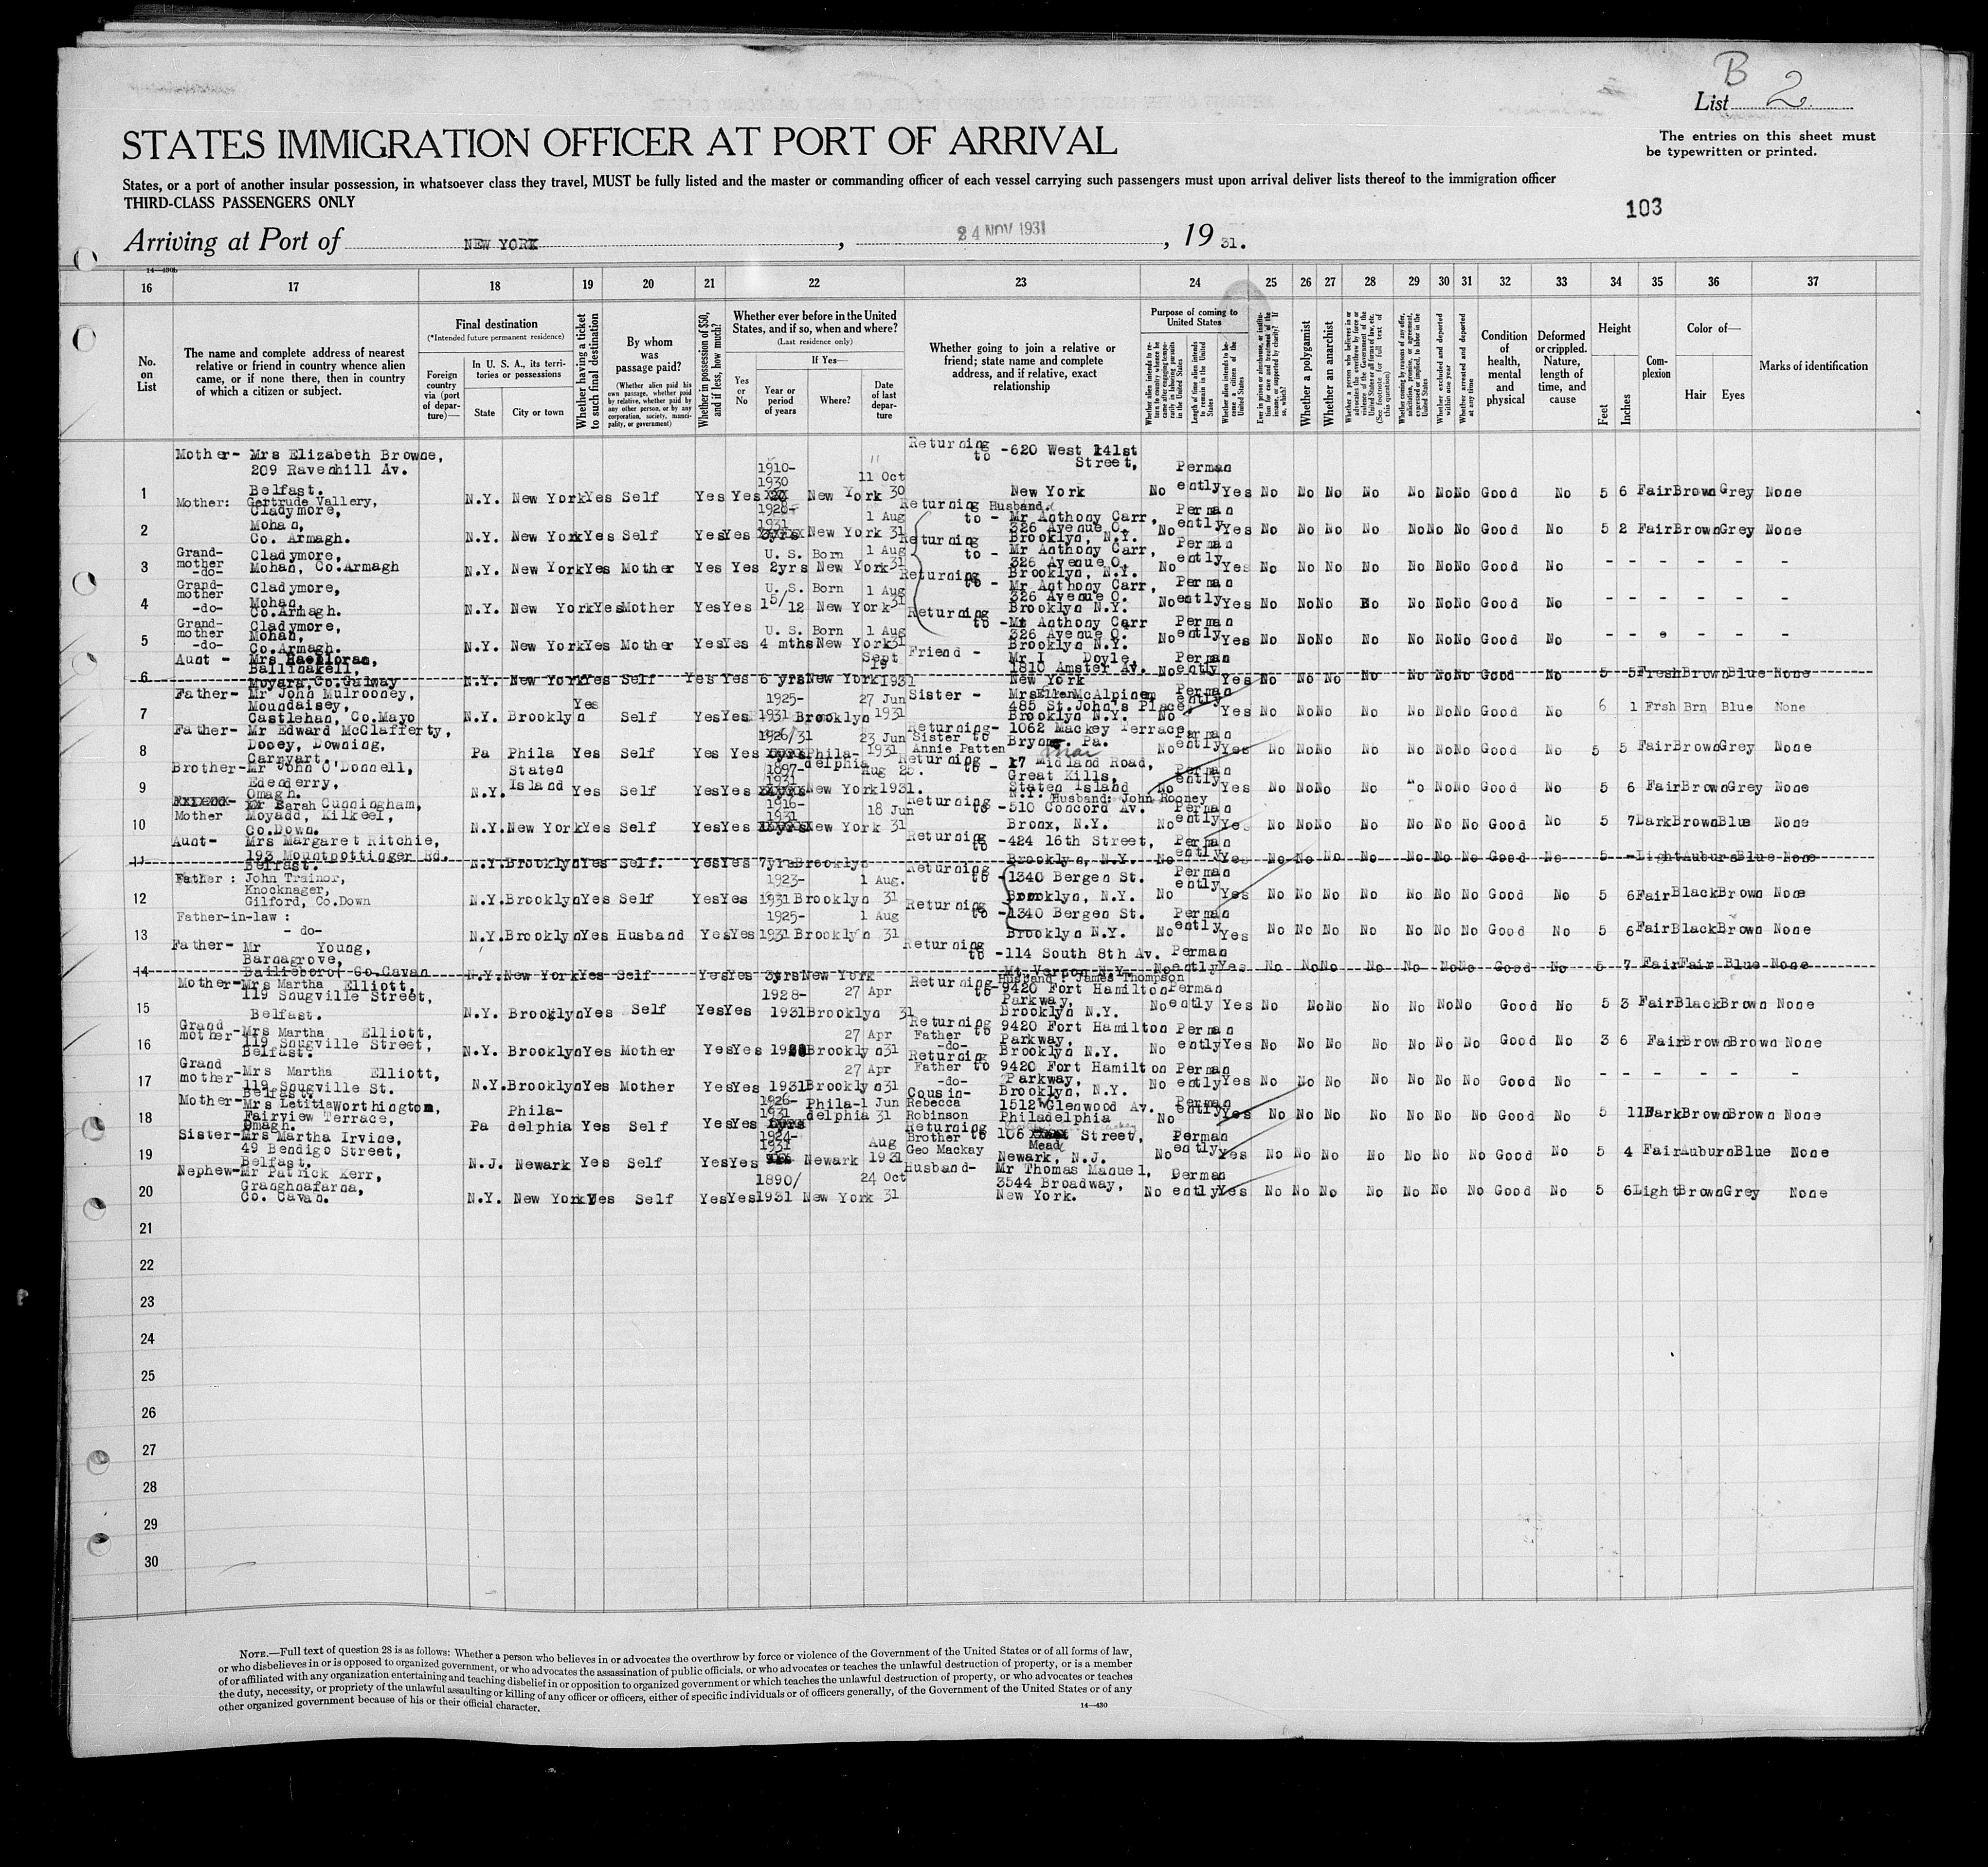 B
List 2
STATES IMMIGRATION OFFICER AT PORT OF ARRIVAL
The entries on this sheet must
be typewritten or printed.
States, or a port of another insular possession, in whatsoever class they travel, MUST be fully listed and the master or commanding officer of each vessel carrying such passengers must upon arrival deliver lists thereof to the immigration officer
THIRD-CLASS PASSENGERS ONLY
103
Arriving at Port of NEW YORK, 24 NOV 1931, 19 31.
14—430b
16 17 18 19 20 21 22 23 24 25 26 27 28 29 30 31 32 33 34 35 36 37
No. on List
The name and complete address of nearest relative or friend in country whence alien came, or if none there, then in country of which a citizen or subject.
Final destination
(*Intended future permanent residence)
Foreign country via (port of departure)—
In U. S. A., its territories or possessions
State City or town
Whether having a ticket to such final destination
By whom was passage paid?
(Whether alien paid his own passage, whether paid by relative, whether paid by any other person, or by any corporation, society, municipality, or government)
Whether in possession of $50, and if less, how much?
Whether ever before in the United States, and if so, when and where?
(Last residence only)
Yes or No
If Yes—
Year or period of years
Where?
Date of last departure
Whether going to join a relative or friend; state name and complete address, and if relative, exact relationship
Purpose of coming to United States
Whether alien intends to return to country whence he came after engaging temporarily in laboring pursuits in the United States
Length of time alien intends to remain in the United States
Whether alien intends to become a citizen of the United States
Ever in prison or almshouse, or institution for care and treatment of the insane, or supported by charity? If so, which?
Whether a polygamist
Whether an anarchist
Whether a person who believes in or advocates the overthrow by force or violence of the Government of the United States or all forms of law, etc. (See footnote for full text of this question)
Whether coming by reason of any offer, solicitation, promise, or agreement, expressed or implied, to labor in the United States
Whether excluded and deported within one year
Whether arrested and deported at any time
Condition of health, mental and physical
Deformed or crippled. Nature, length of time, and cause
Height
Feet Inches
Complexion
Color of—
Hair Eyes
Marks of identification
1 Mother- Mrs Elizabeth Browne, 209 Ravenhill Av. Belfast. N.Y. New York Yes Self Yes Yes 1910-1930 New York 11 Oct 30 Returning to -620 West 141st Street, New York No Permanently Yes No No No No No No No Good No 5 6 Fair Brown Grey None
2 Mother: Gertrude Vallery, Cladymore, Mohan, Co. Armagh. N.Y. New York Yes Self Yes Yes 1928-1931 New York 1 Aug 31 Returning to - Husband. Mr Anthony Carr, 326 Avenue O. Brooklyn, N.Y. No Permanently Yes No No No No No No No Good No 5 2 Fair Brown Grey None
3 Grandmother -do- Cladymore, Mohan, Co.Armagh N.Y. New York Yes Mother Yes Yes U. S. Born 2yrs New York 1 Aug 31 Returning to - Mr Anthony Carr, 326 Avenue O. Brooklyn, N.Y. No Permanently Yes No No No No No No No Good No - - - - - -
4 Grandmother -do- Cladymore, Mohan, Co.Armagh. N.Y. New York Yes Mother Yes Yes U. S. Born 1 5/12 New York 1 Aug 31 Returning to - Mr Anthony Carr, 326 Avenue O. Brooklyn N.Y. No Permanently Yes No No No No No No No Good No - - - - - -
5 Grandmother -do- Cladymore, Mohan, Co.Armagh. N.Y. New York Yes Mother Yes Yes U. S. Born 4 mths New York 1 Aug 31 Returning to -Mr Anthony Carr 326 Avenue O. Brooklyn N.Y. No Permanently Yes No No No No No No No Good No - - - - - -
6 Aunt - Mrs Ballinakell, Moyard, Co.Galway N.Y. New York Yes Self Yes Yes 6 yrs New York Sept 19 1931 Friend - Mr I. Doyle, 1810 Amster Av. New York No Permanently Yes No No No No No No No Good No 5 5 Fresh Brown Blue None
7 Father- Mr John Mulrooney, Moundaisey, Castlehan, Co.Mayo N.Y. Brooklyn Yes Self Yes Yes 1925-1931 Brooklyn 27 Jun 1931 Sister - Mrs Ellen McAlpinem 485 St.John's Place, Brooklyn N.Y. No Permanently Yes No No No No No No No Good No 6 1 Frsh Brn Blue None
8 Father- Mr Edward McClafferty, Dooey, Downing, Carryart. Pa Phila Yes Self Yes Yes 1926/31 Philadelphia 23 Jun 1931 Returning- Sister to Annie Patten 1062 Mackey Terrace, Bryn Pa. No Permanently Yes No No No No No No No Good No 5 5 Fair Brown Grey None
9 Brother-Mr John O'Donnell, Edenderry, Omagh. N.Y. Staten Island Yes Self Yes Yes 1897-1931 New York Aug 25. 1931. Returning to - 17 Midland Road, Great Kills, Staten Island N.Y. No Permanently Yes No No No No No No No Good No 5 6 Fair Brown Grey None
10 Mother Sarah Cunningham, Moyadd, Kilkeel, Co.Down. N.Y. New York Yes Self Yes Yes 1916-1931 New York 18 Jun 31 Returning to Husband: John Rooney -510 Concord Av. Bronx, N.Y. No Permanently Yes No No No No No No No Good No 5 7 Dark Brown Blue None
11 Aunt- Mrs Margaret Ritchie, 193 Mountpottinger Rd, Belfast. N.Y. Brooklyn Yes Self. Yes Yes 7yrs Brooklyn Returning to -424 16th Street, Brooklyn, N.Y. No Permanently Yes No No No No No No No Good No 5 - Light Auburn Blue None
12 Father : John Trainor, Knocknager, Gilford, Co.Down N.Y. Brooklyn Yes Self Yes Yes 1923-1931 Brooklyn 1 Aug. 31 Returning to -1340 Bergen St. Brooklyn, N.Y. No Permanently Yes No No No No No No No Good No 5 6 Fair Black Brown None
13 Father-in-law : - do- N.Y. Brooklyn Yes Husband Yes Yes 1925-1931 Brooklyn 1 Aug 31 Returning to -1340 Bergen St. Brooklyn N.Y. No Permanently Yes No No No No No No No Good No 5 6 Fair Black Brown None
14 Father- Mr Young, Barnagrove, Bailieboro, Co.Cavan N.Y. New York Yes Self Yes Yes 3yrs New York Returning to -114 South 8th Av. Mt Vernon N.Y. No Permanently Yes No No No No No No No Good No 5 7 Fair Fair Blue None
15 Mother-Mrs Martha Elliott, 119 Snugville Street, Belfast. N.Y. Brooklyn Yes Self Yes Yes 1928-1931 Brooklyn 27 Apr 31 Returning to Husband : James Thompson -9420 Fort Hamilton Parkway, Brooklyn N.Y. No Permanently Yes No No No No No No No Good No 5 3 Fair Black Brown None
16 Grandmother -Mrs Martha Elliott, 119 Snugville Street, Belfast. N.Y. Brooklyn Yes Mother Yes Yes Brooklyn 27 Apr 31 Returning to Father -do- 9420 Fort Hamilton Parkway, Brooklyn N.Y. No Permanently Yes No No No No No No No Good No 3 6 Fair Brown Brown None
17 Grandmother -Mrs Martha Elliott, 119 Snugville St. Belfast. N.Y. Brooklyn Yes Mother Yes Yes 1931 Brooklyn 27 Apr 31 Returning Father to -do- 9420 Fort Hamilton Parkway, Brooklyn, N.Y. No Permanently Yes No No No No No No No Good No - - - - - -
18 Mother-Mrs Letitia Worthington, Fairview Terrace, Omagh. Pa Philadelphia Yes Self Yes Yes 1926-1931 Philadelphia 1 Jun 31 Cousin- Rebecca Robinson 1512 W Glenwood Av. Philadelphia No Permanently Yes No No No No No No No Good No 5 11 Dark Brown Brown None
19 Sister-Mrs Martha Irvine, 49 Bendigo Street, Belfast. N.J. Newark Yes Self Yes Yes 1924-1931 Newark Aug 1931 Returning Brother to Geo Mackay 106 Mead Street, Newark, N.J. No Permanently Yes No No No No No No No Good No 5 4 Fair Auburn Blue None
20 Nephew-Mr Patrick Kerr, Granghnafarna, Co. Cavan. N.Y. New York Yes Self Yes Yes 1890/1931 New York 24 Oct 31 Husband- Mr Thomas Manuel, 3544 Broadway, New York. No Permanently Yes No No No No No No No Good No 5 6 Light Brown Grey None
21
22
23
24
25
26
27
28
29
30
NOTE.—Full text of question 28 is as follows: Whether a person who believes in or advocates the overthrow by force or violence of the Government of the United States or of all forms of law,
or who disbelieves in or is opposed to organized government, or who advocates the assassination of public officials, or who advocates or teaches the unlawful destruction of property, or is a member
of or affiliated with any organization entertaining and teaching disbelief in or opposition to organized government or which teaches the unlawful destruction of property, or who advocates or teaches
the duty, necessity, or propriety of the unlawful assaulting or killing of any officer or officers, either of specific individuals or of officers generally, of the Government of the United States or of any
other organized government because of his or their official character.
14—430